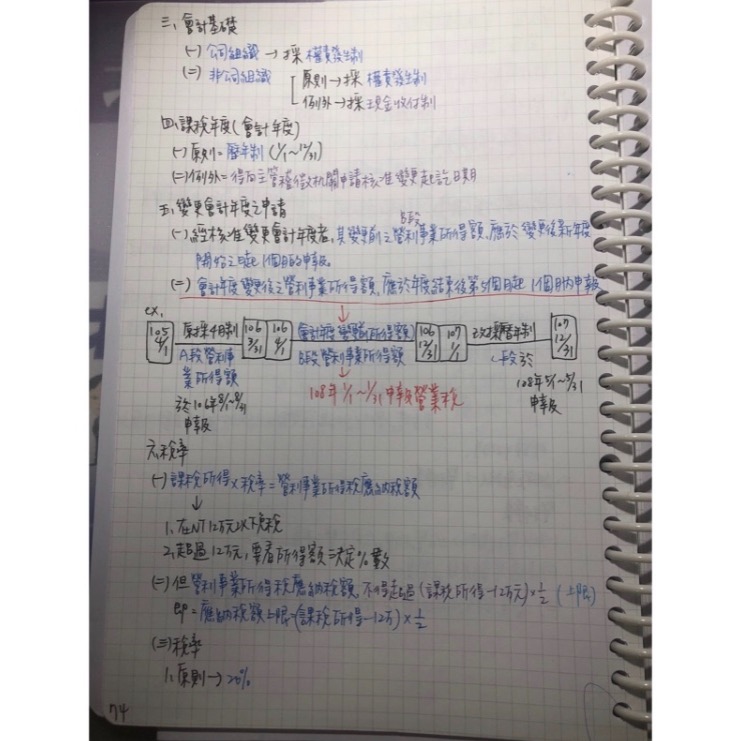 三、會計基礎
(一) 公司組織 → 採 權責發生制
(二) 非公司組織 原則 → 採 權責發生制
例外 → 採 現金收付制
四、課稅年度(會計年度)
(一) 原則=曆年制 (1/1~12/31)
(二) 例外=得向主管稽徵機關申請核准變更起訖日期
五、變更會計年度之申請
B段
(一) 經核准變更會計年度者, 其變更前之營利事業所得額, 應於變更後新年度
開始之日起 1個月內申報。
(二) 會計年度變更後之營利事業所得額, 應於年度結束後第5個月起 1個月內申報
ex.
105 4/1 原採4月制 106 3/31 106 4/1 會計年度變更前所得額 106 12/31 107 1/1 改採曆年制 107 12/31
A段營利事 B段營利事業所得額 C段於
業所得額 108年5/1~5/31
於106年8/1~8/31 108年1/1~1/31申報營業稅 申報
申報
六、稅率
(一) 課稅所得×稅率=營利事業所得稅應納稅額
↓
1. 在NT12萬元以下免稅
2. 超過12萬元, 要看所得額 決定%數
(二) 但營利事業所得稅應納稅額, 不得超過 (課稅所得-12萬元)×1/2 (上限)
即=應納稅額上限=(課稅所得-12萬)×1/2
(三) 稅率
1. 原則 → 20%
74